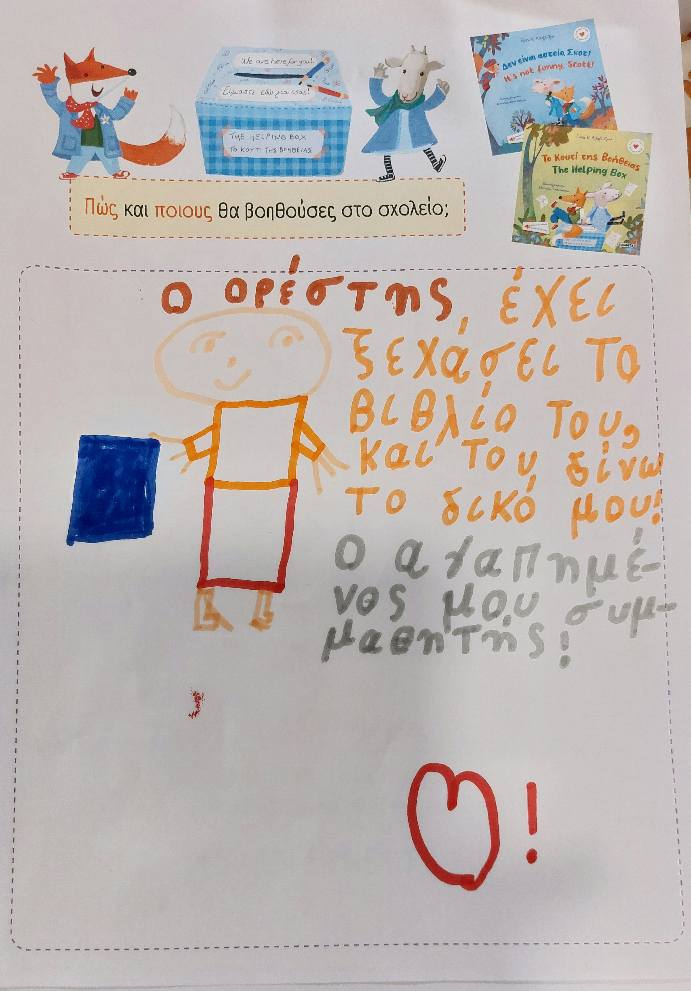 We are here for you!
Είμαστε εδώ για εσάς!
THE HELPING BOX
ΤΟ ΚΟΥΤΙ ΤΗΣ ΒΟΗΘΕΙΑΣ
Δεν είναι αστείο, Σκοτ!
It's not funny, Scott!
Το Κουτί της Βοήθειας
The Helping Box
Πώς και ποιους θα βοηθούσες στο σχολείο;
Ο ορέστης, έχει
ξεχάσει το
βιβλίο τους,
και του δίνω
το δικό μου!
Ο αγαπημέ-
νος μου συμ-
μαθητής!
!